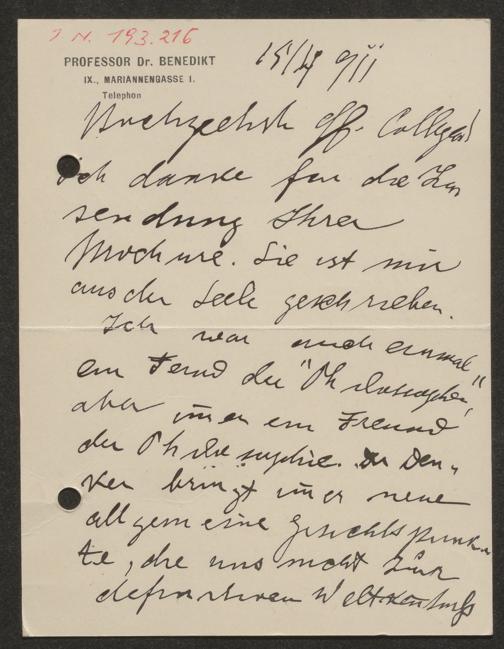 I N. 193.216
PROFESSOR Dr. BENEDIKT
IX., MARIANNENGASSE 1.
Telephon
15/ 911
Hochgeehrter H. College!
Ich danke für die Zu
sendung Ihrer
Brochure. Sie ist mir
aus der Seele geschrieben.
Ich war auch einmal
ein Feind der "Philosophen"
aber immer ein Freund
der Philosophie. Der Den-
ker bringt immer neue
allgemeine Gesichtspunk-
te, die uns nicht zur
definitiven